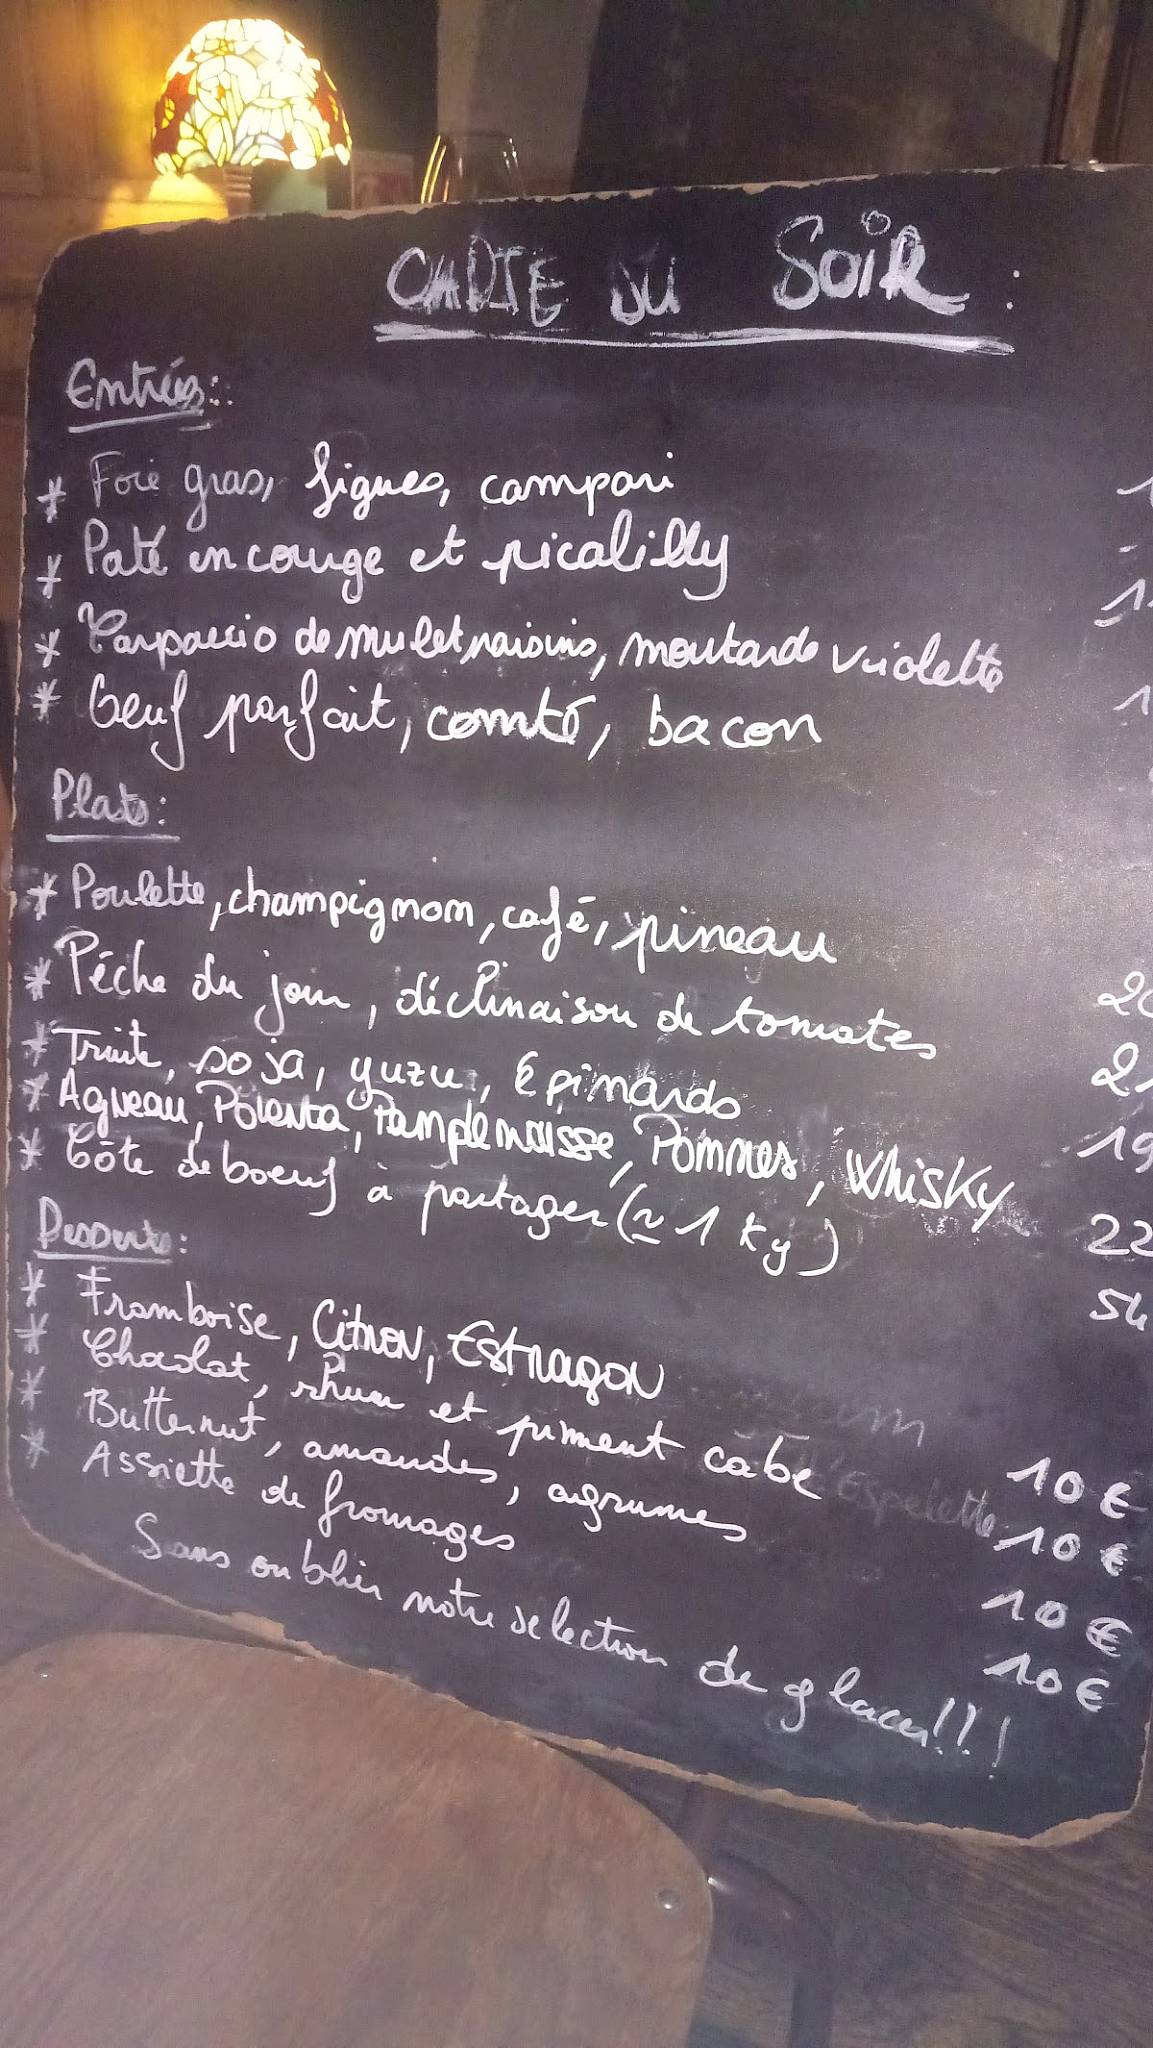 CARTE DU SOIR :
Entrées :
* Foie gras, figues, campari
* Paté en courge et picalilly
* Carpaccio de mulet, raisins, moutarde violette
* Oeuf parfait, comté, bacon
Plats :
* Poulette, champignon, café, pineau
* Pêche du jour, déclinaison de tomates
* Truite, soja, yuzu, épinards 19
* Agneau, Polenta, Pamplemousse, Pommes, Whisky 22
* Côte de boeuf à partager (≃ 1 kg) 54
Desserts :
* Framboise, Citron, Estragon 10 €
* Chocolat, rhum et piment cabe espelette 10 €
* Butternut, amandes, agrumes 10 €
* Assiette de fromages 10 €
Sans oublier notre selection de glaces!!!